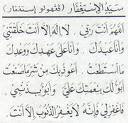 سَيِّدُ الْاِسْتِغْفَارِ (ڤڠهولو إستغفار)
اَللّٰهُمَّ أَنْتَ رَبِّي لَا إِلٰهَ إِلَّا أَنْتَ خَلَقْتَنِي
وَأَنَا عَبْدُكَ وَأَنَا عَلَى عَهْدِكَ وَوَعْدِكَ
مَا اسْتَطَعْتُ أَعُوذُ بِكَ مِنْ شَرِّ مَا صَنَعْتُ
أَبُوءُ لَكَ بِنِعْمَتِكَ عَلَيَّ وَأَبُوءُ بِذَنْبِي
فَاغْفِرْلِي فَإِنَّهُ لَا يَغْفِرُ الذُّنُوبَ إِلَّا أَنْتَ.